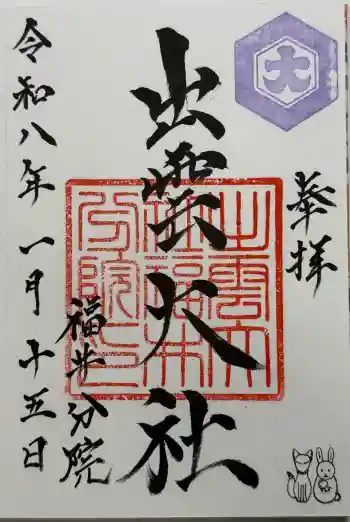 奉拝
大
出雲大社
福井分院
令和八年一月十五日
出雲大
社福井
分院印